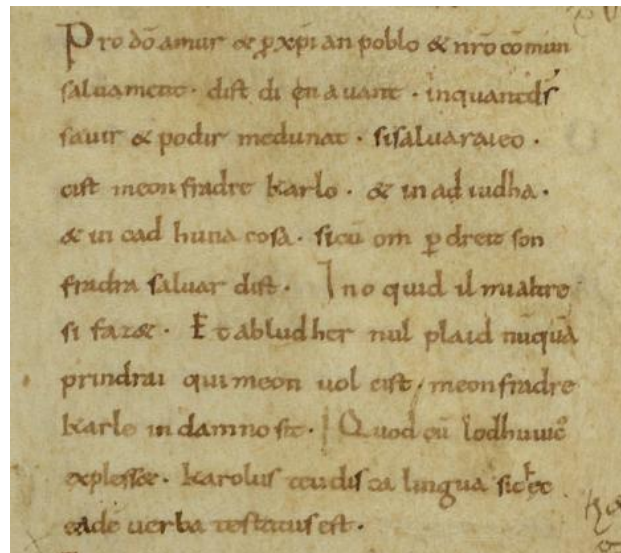 Pro dõ amur & p xpi an poblo & nr̃o cõmun
saluament. dist di en auant. inquantds̃
sauir & podir medunat. sisaluaraieo.
cist meonfradre Karlo. & in ad iudha.
& in cad huna cosa. sicũ om p dreit son
fradra saluar dist. Ino quid il mialtre
si faz&. Et abludher nul plaid nũquã
prindrai quimeon uol cist, meonfradre
Karle in damno sit. Quod cũ lodhuuic̃
expless&. Karolus teudisca lingua sic ec
eadẽ uerba testatus est.